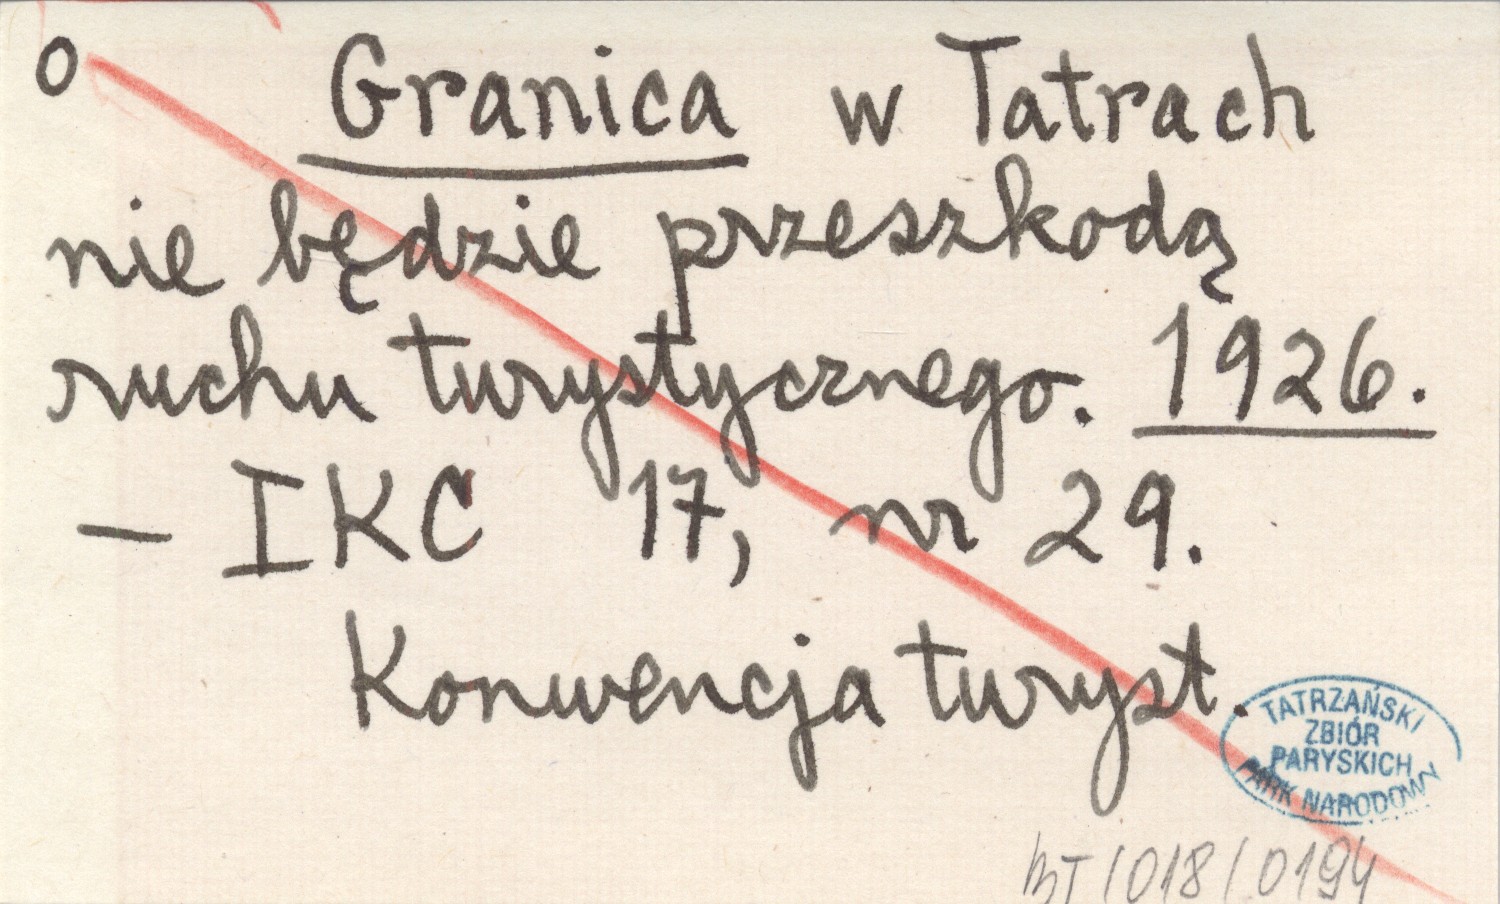 o Granica w Tatrach
nie będzie przeszkodą
ruchu turystycznego. 1926.
– IKC 17, nr 29.
Konwencja turyst.
TATRZAŃSKI
ZBIÓR
PARYSKICH
PARK NARODOWY
BT/018/0194